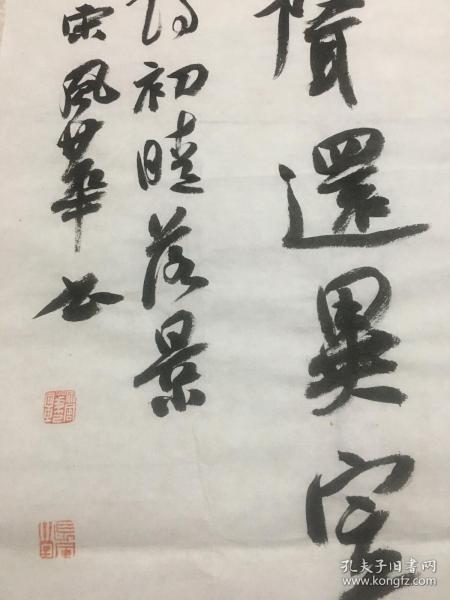 聲還異寄
詩初晴落景
宋風華书
孔夫子旧书网
www.kongfz.com